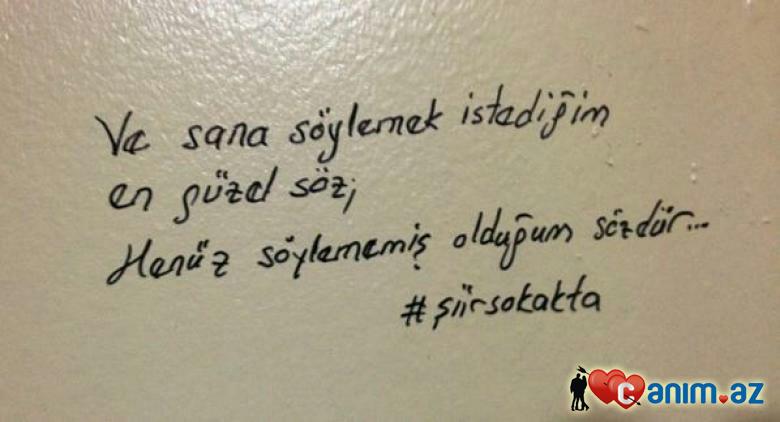 Ve sana söylemek istediğim
en güzel söz;
Henüz söylememiş olduğum sözdür...
#şiirsokakta
Canim.az